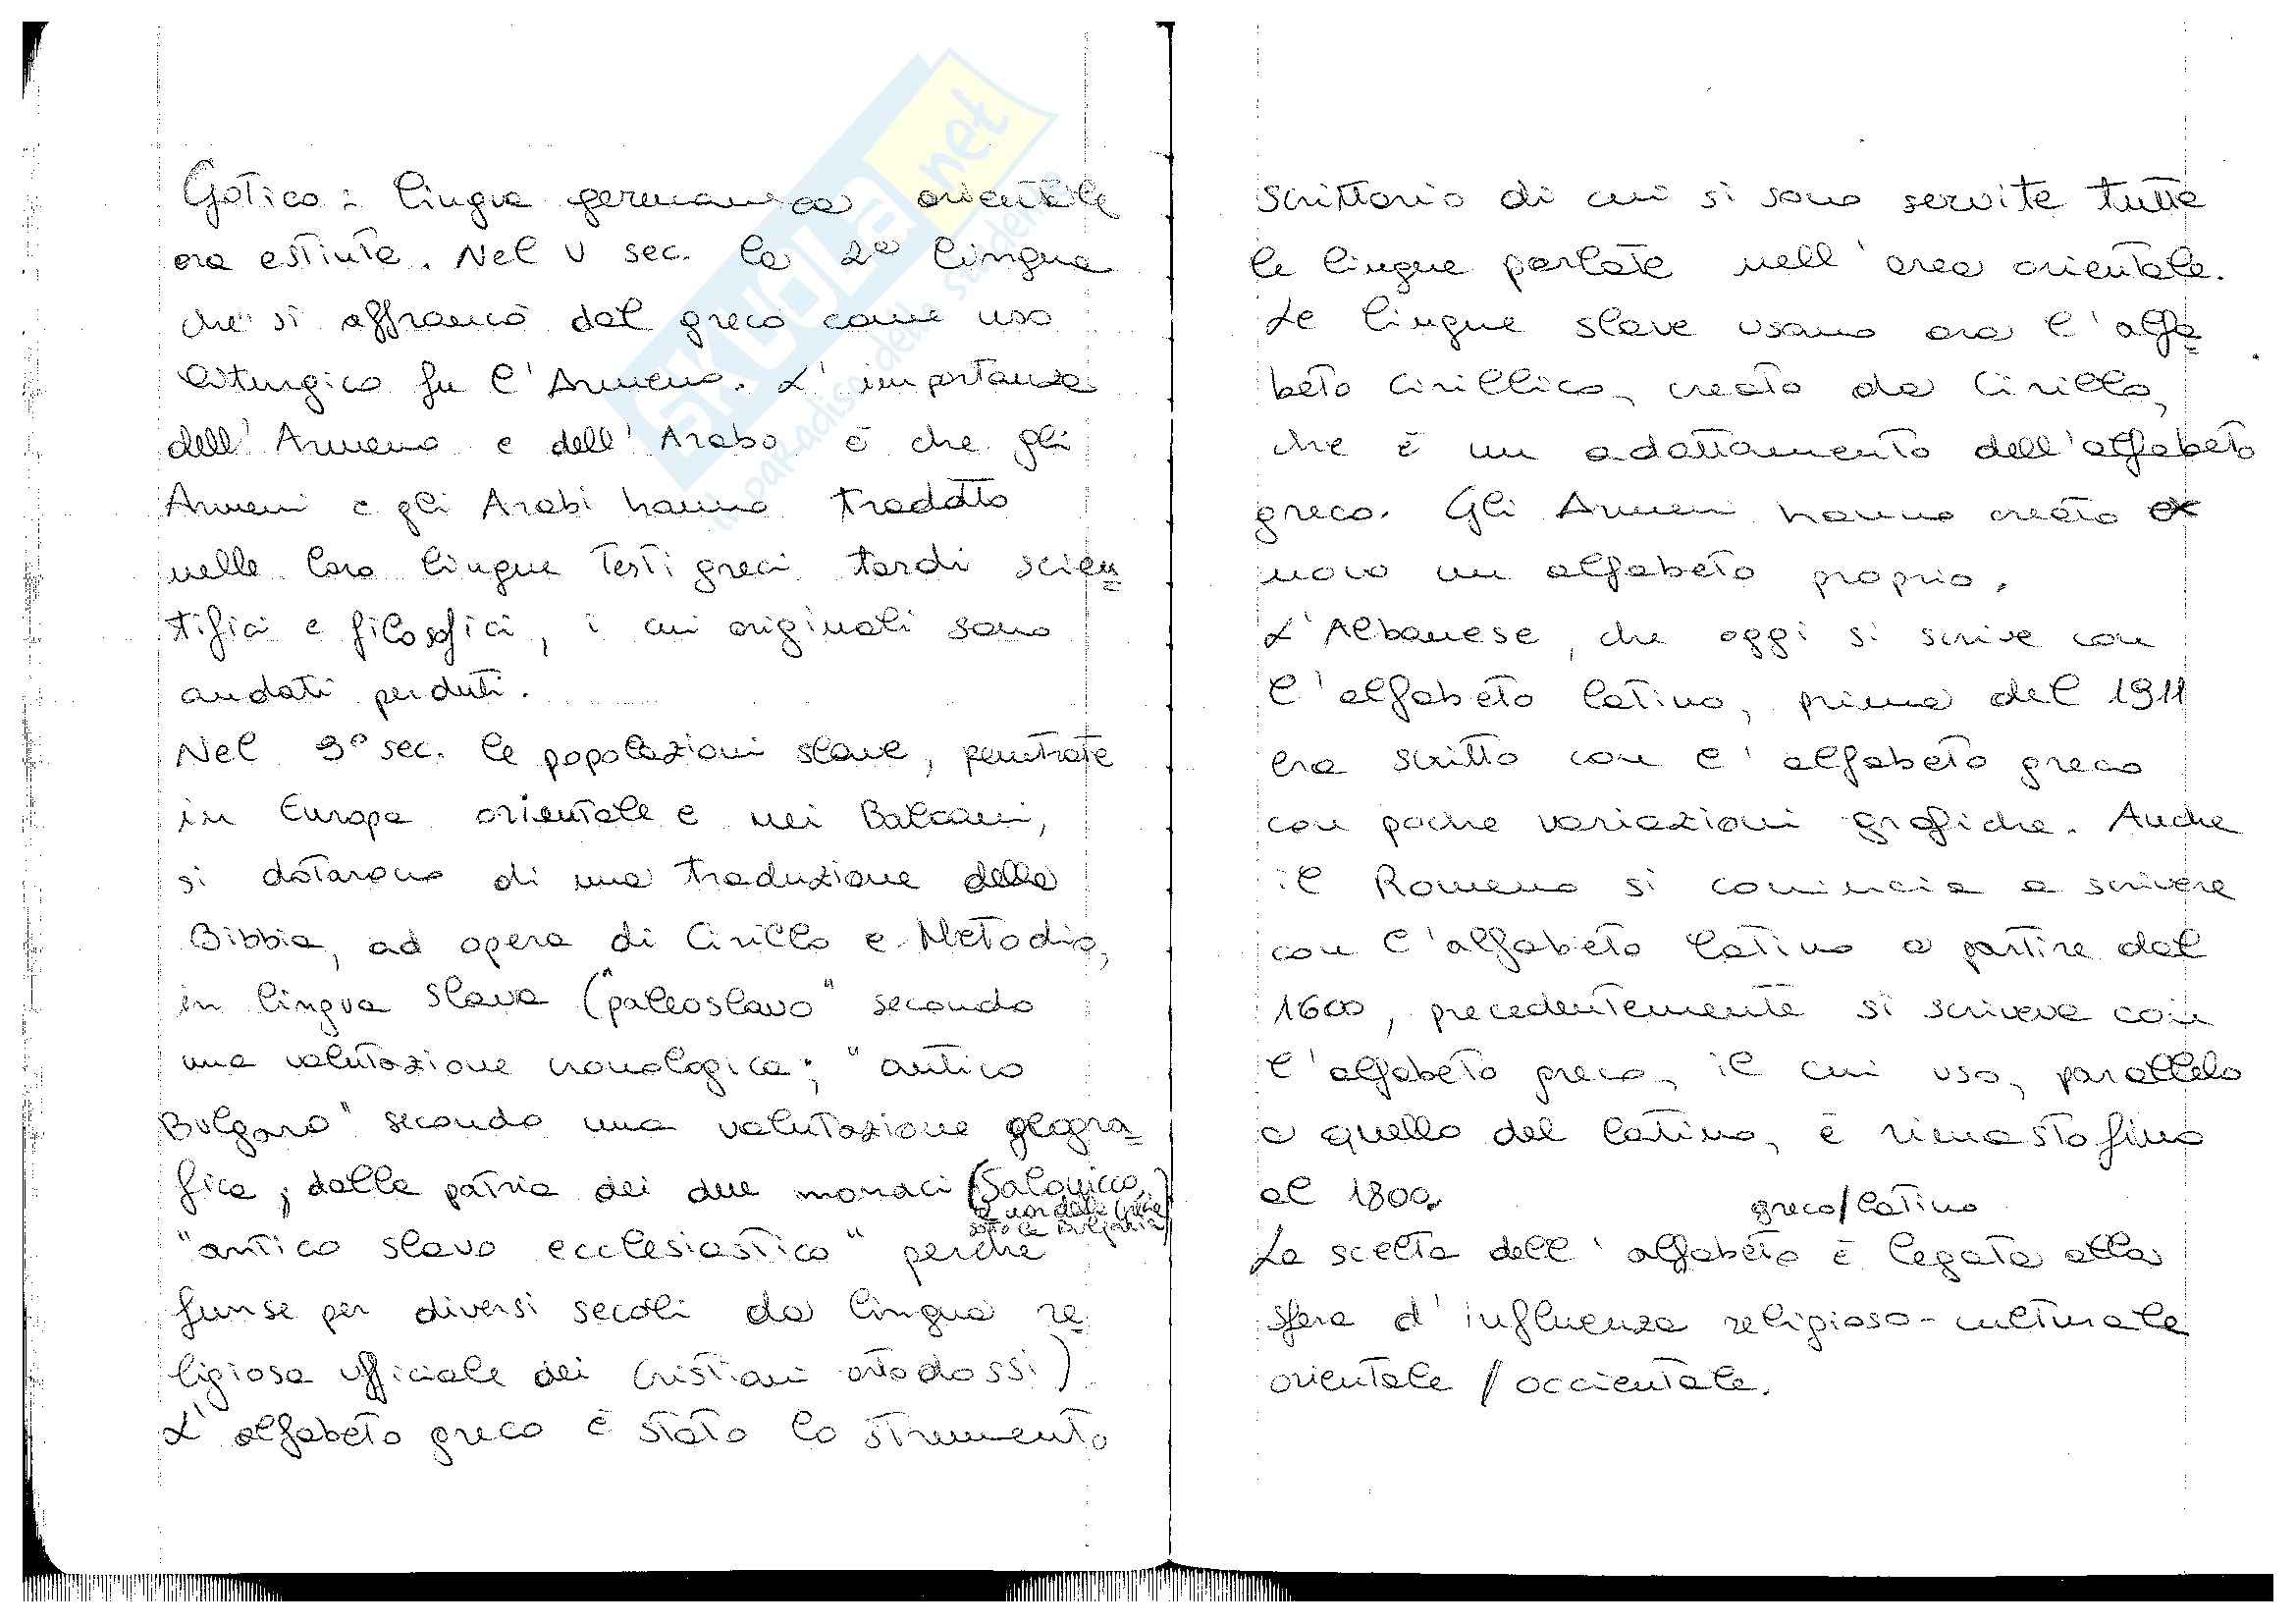 Gotico: lingua germanica orientale
ora estinta. Nel V sec. la 2ª lingua
che si affrancò dal greco come uso
liturgico fu l'Armeno. L'importanza
dell'Armeno e dell'Arabo è che gli
Armeni e gli Arabi hanno tradotto
nelle loro lingue testi greci tardi scien=
tifici e filosofici, i cui originali sono
andati perduti.
Nel 9° sec. le popolazioni slave, penetrate
in Europa orientale e nei Balcani,
si dotarono di una traduzione della
Bibbia, ad opera di Cirillo e Metodio,
in lingua slava ("paleoslavo" secondo
una valutazione cronologica; "antico
Bulgaro" secondo una valutazione geogra=
fica, dalla patria dei due monaci (Salonicco,
"antico slavo ecclesiastico" perché
funse per diversi secoli da lingua re=
ligiosa ufficiale dei Cristiani ortodossi)
L'alfabeto greco è stato lo strumento
scrittorio di cui si sono servite tutte
le lingue parlate nell'area orientale.
Le lingue slave usano ora l'alfa=
beto cirillico, creato da Cirillo,
che è un adattamento dell'alfabeto
greco. Gli Armeni hanno creato ex
novo un alfabeto proprio.
L'Albanese, che oggi si scrive con
l'alfabeto latino, prima del 1911
era scritto con l'alfabeto greco
con poche variazioni grafiche. Anche
il Romeno si comincia a scrivere
con l'alfabeto latino a partire dal
1600, precedentemente si scriveva con
l'alfabeto greco, il cui uso, parallelo
a quello del latino, è rimasto fino
al 1800.
greco/latino
La scelta dell'alfabeto è legata alla
sfera d'influenza religioso-culturale
orientale / occientale.
SKUOLA.net